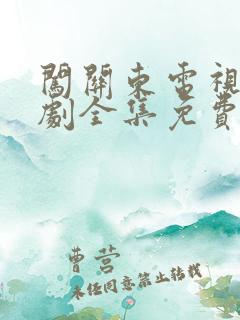 闖關東電視
劇全集免費
曹营
未经同意禁止转载